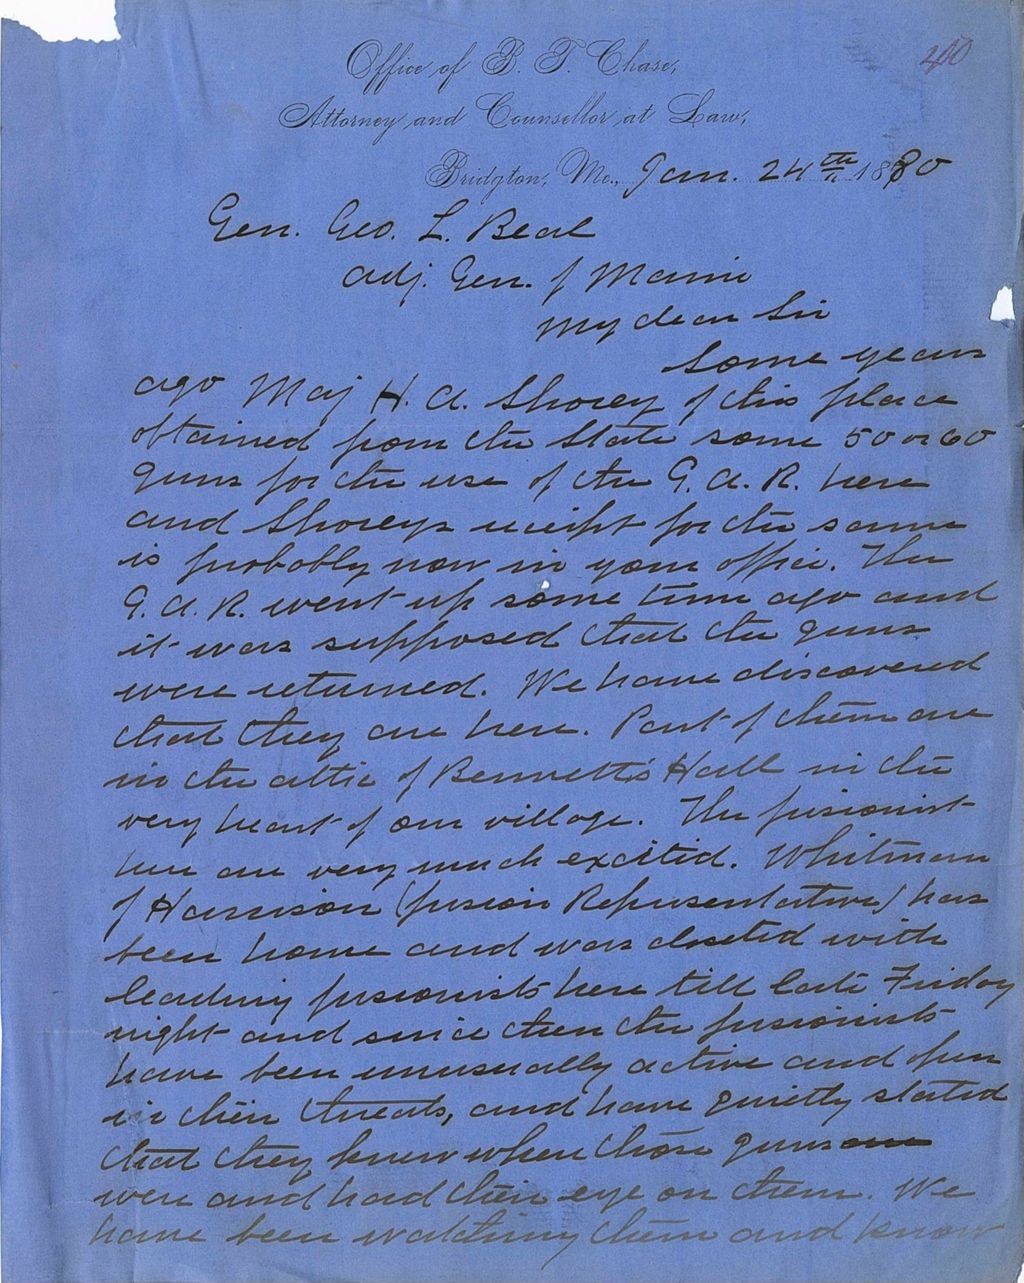 40
Office of B. T. Chase,
Attorney and Counsellor at Law,
Bridgton, Me., Jan. 24th 1880
Gen. Geo. L. Beal
Adj. Gen. of Maine
My dear Sir
Some years
ago Maj H. A. Shorey of this place
obtained from the State some 50 or 60
guns for the use of the G. A. R. here
and Shorey's receipt for the same
is probably now in your office. The
G. A. R. went up some time ago and
it was supposed that the guns
were returned. We have discovered
that they are here. Part of them are
in the attic of Bennett's Hall in the
very heart of our village. The fusionist
here are very much excited. Whitman
of Harrison (fusion Representative) has
been home and was closeted with
leading fusionists here till late Friday
night and since then the fusionists
have been unusually active and open
in their threats, and have quietly stated
that they knew where those guns are
were and had their eye on them. We
have been watching them and know